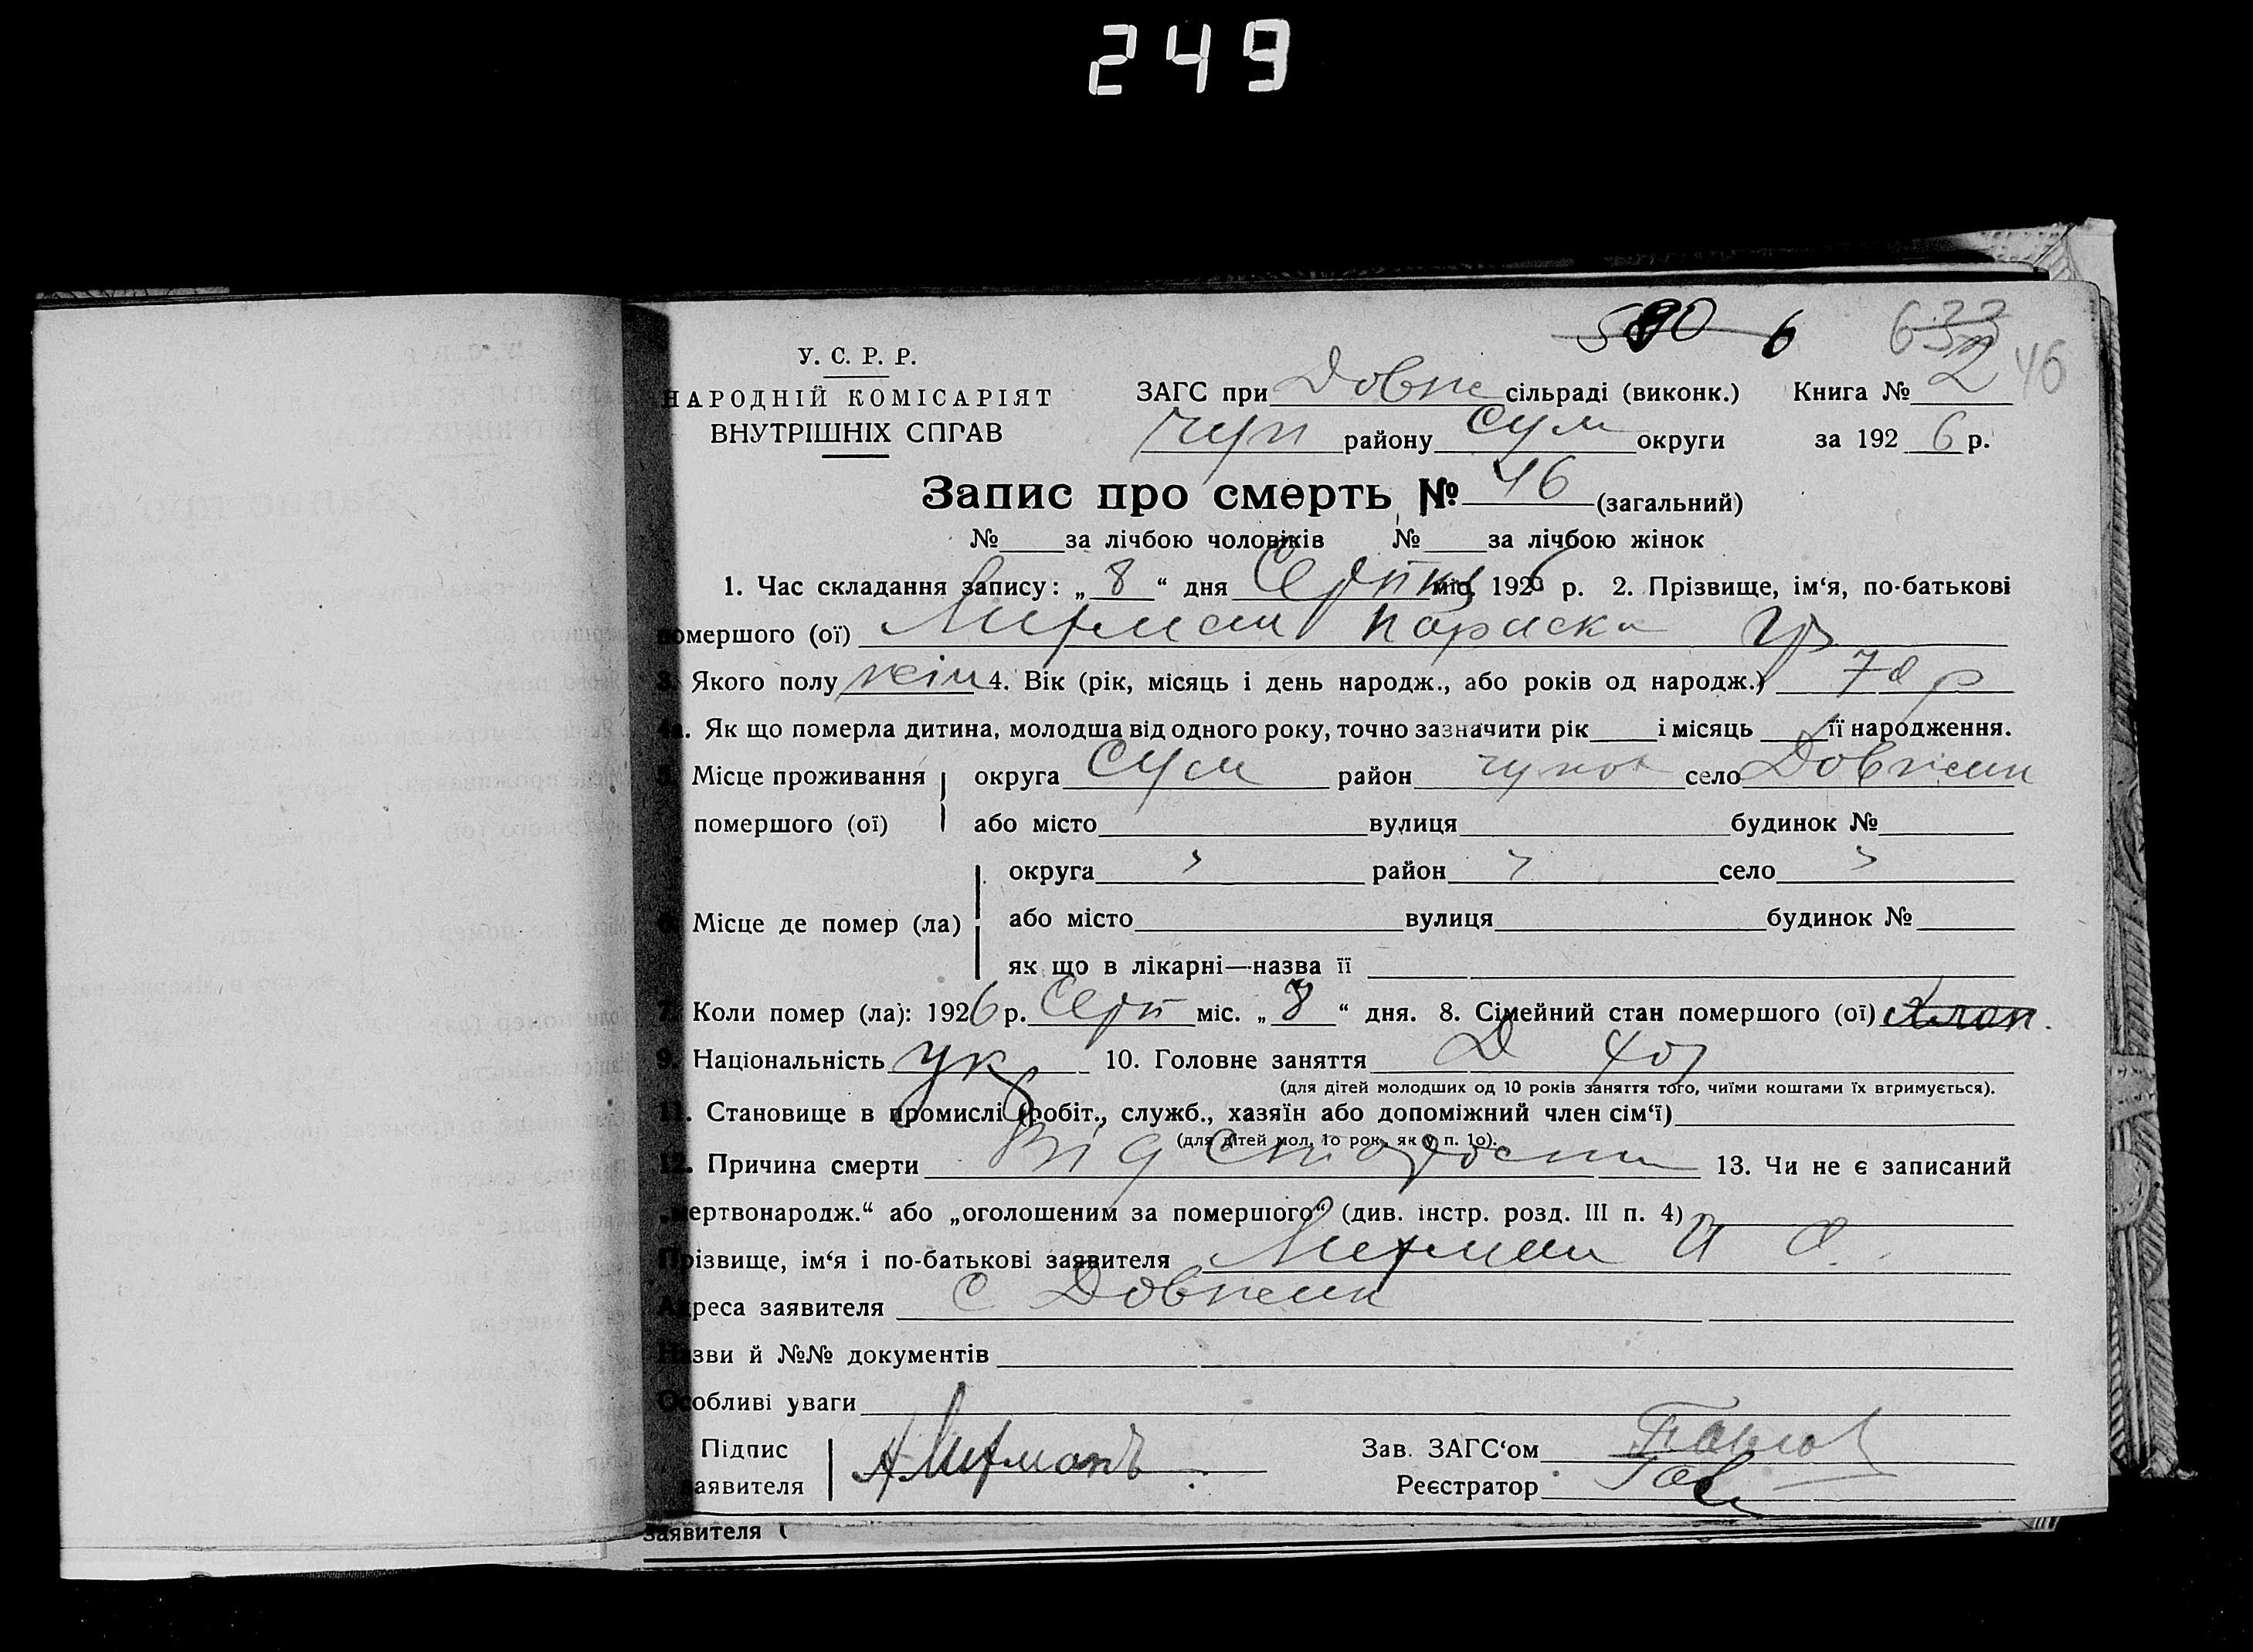 249
590 6 633
У. С. Р. Р.
НАРОДНІЙ КОМІСАРІЯТ
ВНУТРІШНІХ СПРАВ
ЗАГС при Довж сільраді (виконк.) Книга № 2 46
Чуп району Сум округи за 1926 р.
Запис про смерть № 46 (загальний)
№ за лічбою чоловіків № за лічбою жінок
1. Час складання запису: „8“ дня Серпня міс. 1926 р. 2. Прізвище, ім‘я, по-батькові
помершого (ої) Параска Гр
3. Якого полу жін 4. Вік (рік, місяць і день народж., або років од народж.) 70 р
4а. Як що померла дитина, молодша від одного року, точно зазначити рік і місяць її народження.
5. Місце проживання округа Сум район село Довжик
помершого (ої) або місто вулиця будинок №
округа " район " село "
6. Місце де помер (ла) або місто вулиця будинок №
як що в лікарні—назва її
7. Коли помер (ла): 1926 р. Серп міс. „8“ дня. 8. Сімейний стан помершого (ої)
9. Національність укр 10. Головне заняття
(для дітей молодших од 10 років заняття того, чиїми коштами їх втримується).
11. Становище в промислі (робіт., служб., хазяїн або допоміжний член сім‘ї)
(для дітей мол. 10 рок. як у п. 10).
12. Причина смерти Від старости 13. Чи не є записаний
„мертвонародж.“ або „оголошеним за помершого“ (див. інстр. розд. III п. 4)
Прізвище, ім‘я і по-батькові заявителя
Адреса заявителя с Довжик
Назви й №№ документів
Особливі уваги
Підпис Зав. ЗАГС‘ом
заявителя Реєстратор
заявителя (